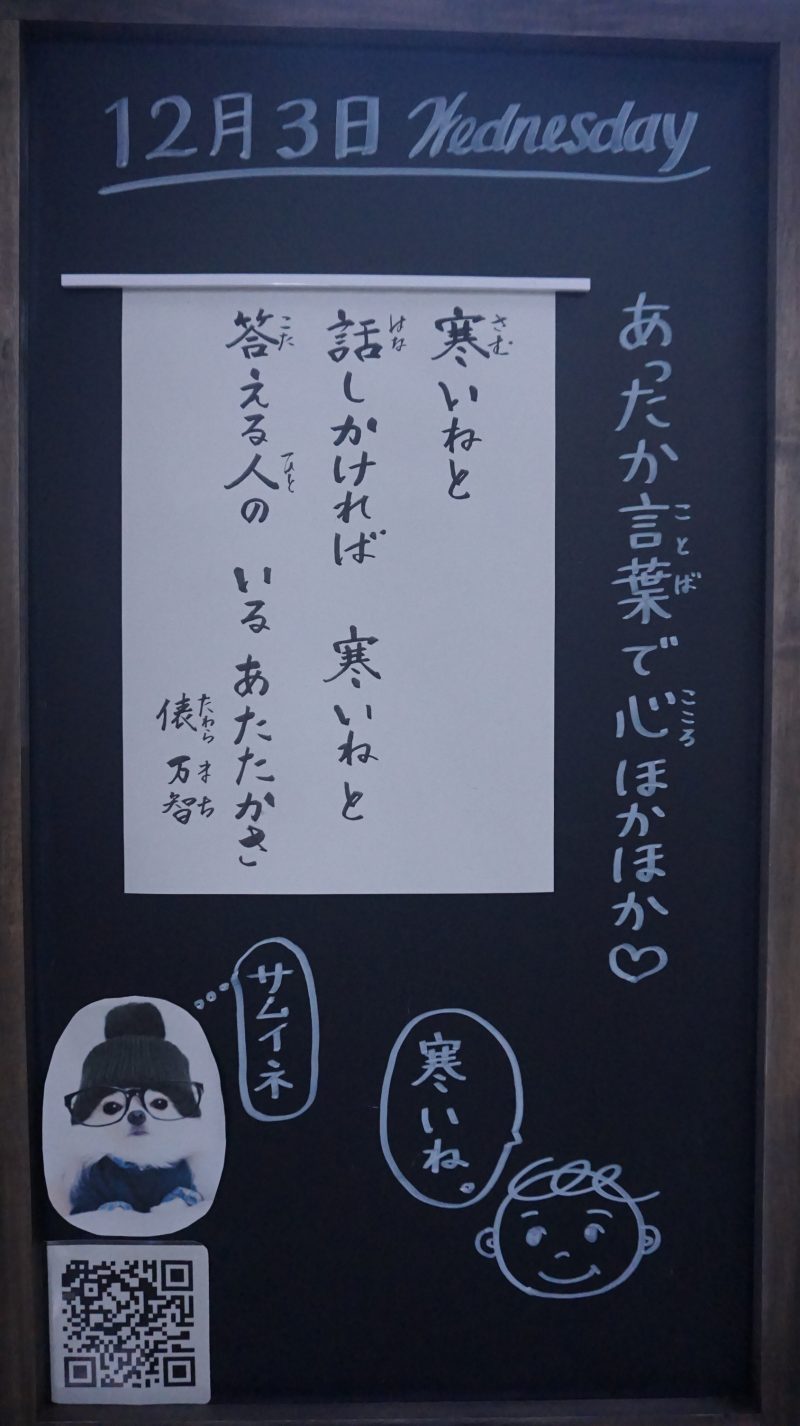 12月3日 Wednesday
あったか言葉で心ほかほか♡
ことば
こころ
寒いねと
さむ
話しかければ 寒いねと
はな
答える人の いる あたたかさ
こた
ひと
俵 万智
たわら まち
サムイネ
寒いね。